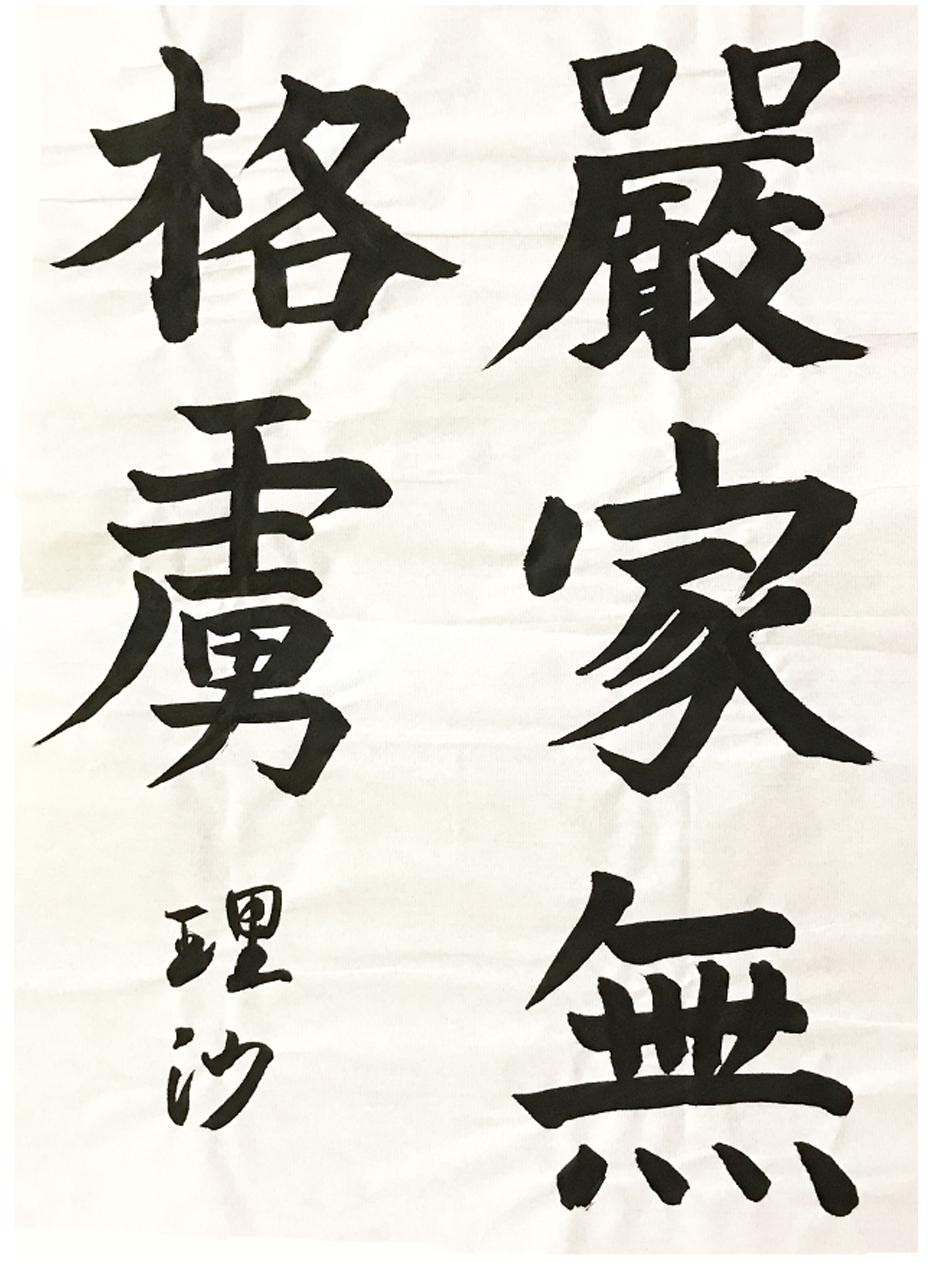 嚴家無
格虜
理沙